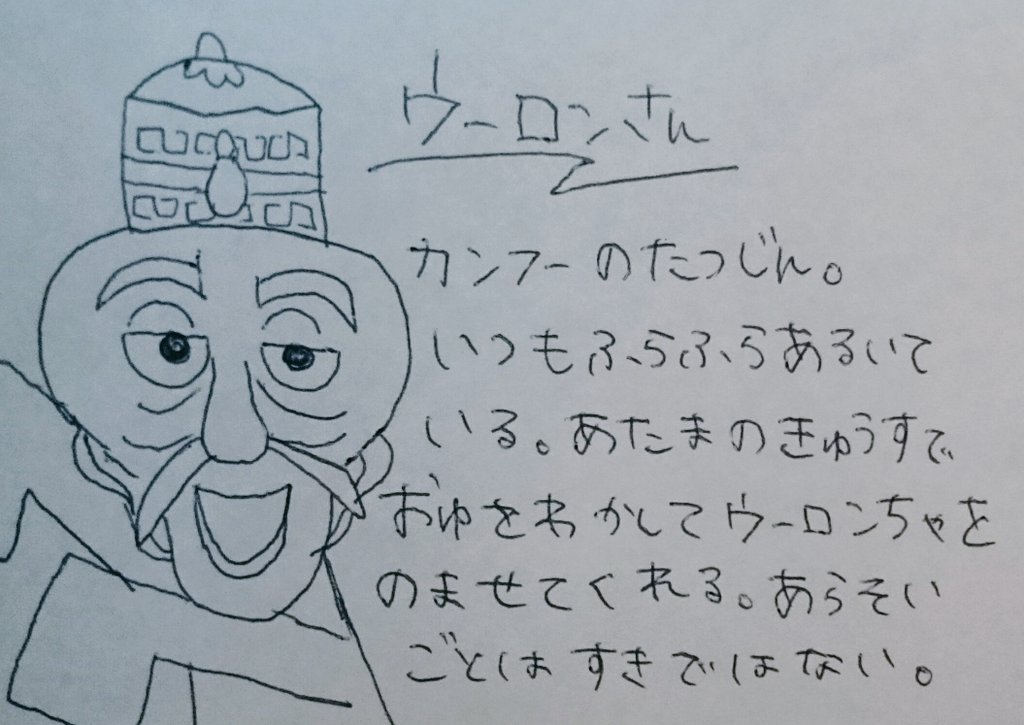 ウーロンさん
カンフーのたつじん。
いつもふらふらあるいて
いる。あたまのきゅうすで
おゆをわかしてウーロンちゃを
のませてくれる。あらそい
ごとはすきではない。